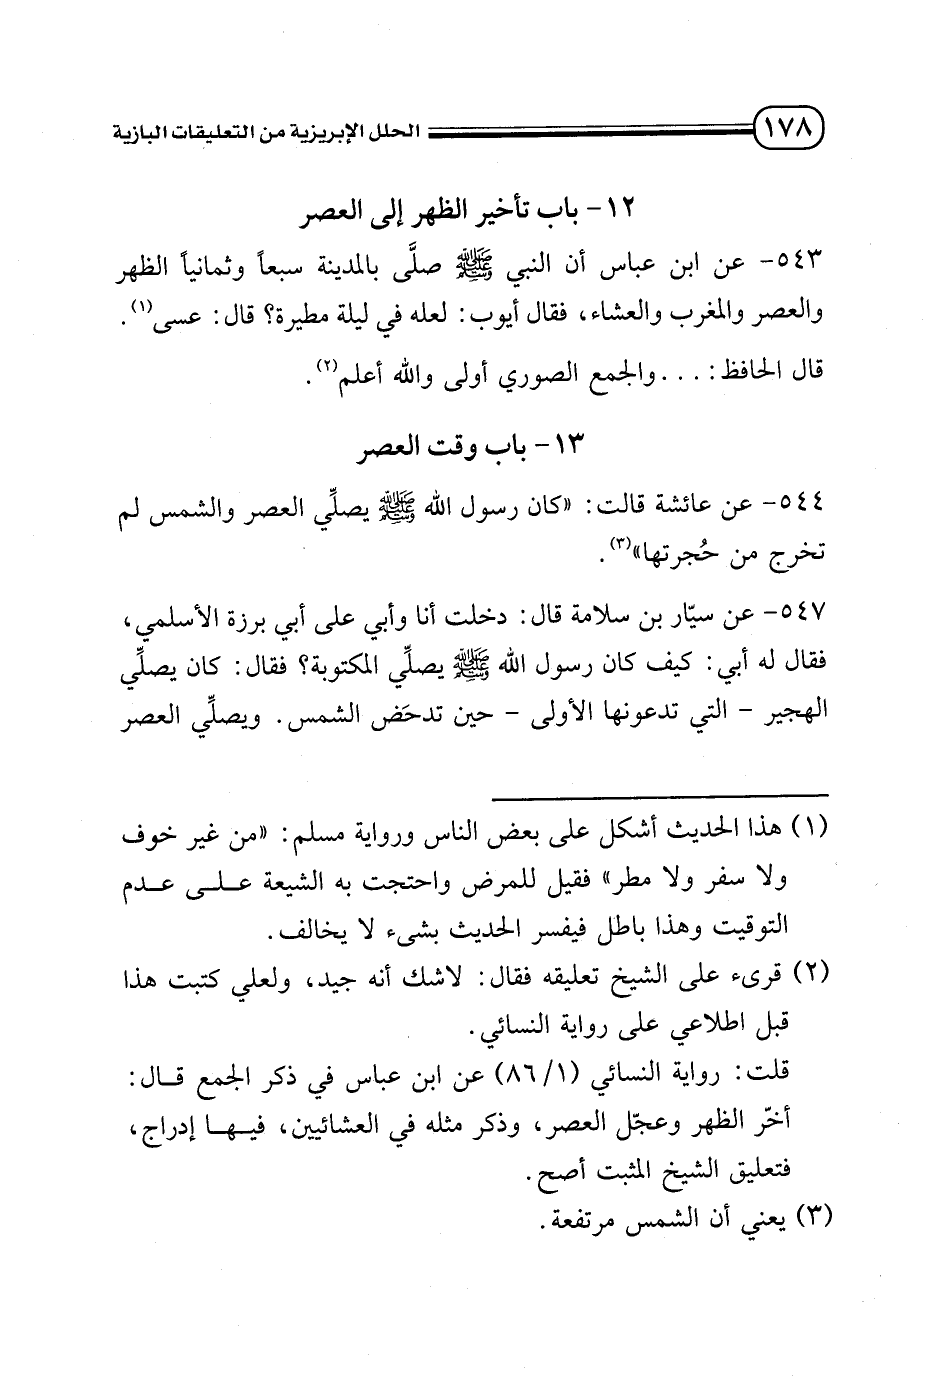 ١٧٨ الحلل الإبريزية من التعليقات البازية
١٢- باب تأخير الظهر إلى العصر
٥٤٣- عن ابن عباس أن النبي ﷺ صلَّى بالمدينة سبعاً وثمانياً الظهر
والعصر والمغرب والعشاء، فقال أيوب: لعله في ليلة مطيرة؟ قال: عسى(١).
قال الحافظ: . . . والجمع الصوري أولى والله أعلم(٢).
١٣- باب وقت العصر
٥٤٤- عن عائشة قالت: «كان رسول الله ﷺ يصلِّي العصر والشمس لم
تخرج من حُجرتها»(٣).
٥٤٧- عن سيّار بن سلامة قال: دخلت أنا وأبي على أبي برزة الأسلمي،
فقال له أبي: كيف كان رسول الله ﷺ يصلِّي المكتوبة؟ فقال: كان يصلِّي
الهجير - التي تدعونها الأولى - حين تدحَض الشمس. ويصلِّي العصر
(١) هذا الحديث أشكل على بعض الناس ورواية مسلم: «من غير خوف
ولا سفر ولا مطر» فقيل للمرض واحتجت به الشيعة على عدم
التوقيت وهذا باطل فيفسر الحديث بشىء لا يخالف.
(٢) قرىء على الشيخ تعليقه فقال: لاشك أنه جيد، ولعلي كتبت هذا
قبل اطلاعي على رواية النسائي.
قلت: رواية النسائي (٨٦/١) عن ابن عباس في ذكر الجمع قال:
أخّر الظهر وعجّل العصر، وذكر مثله في العشائيين، فيها إدراج،
فتعليق الشيخ المثبت أصح.
(٣) يعني أن الشمس مرتفعة.